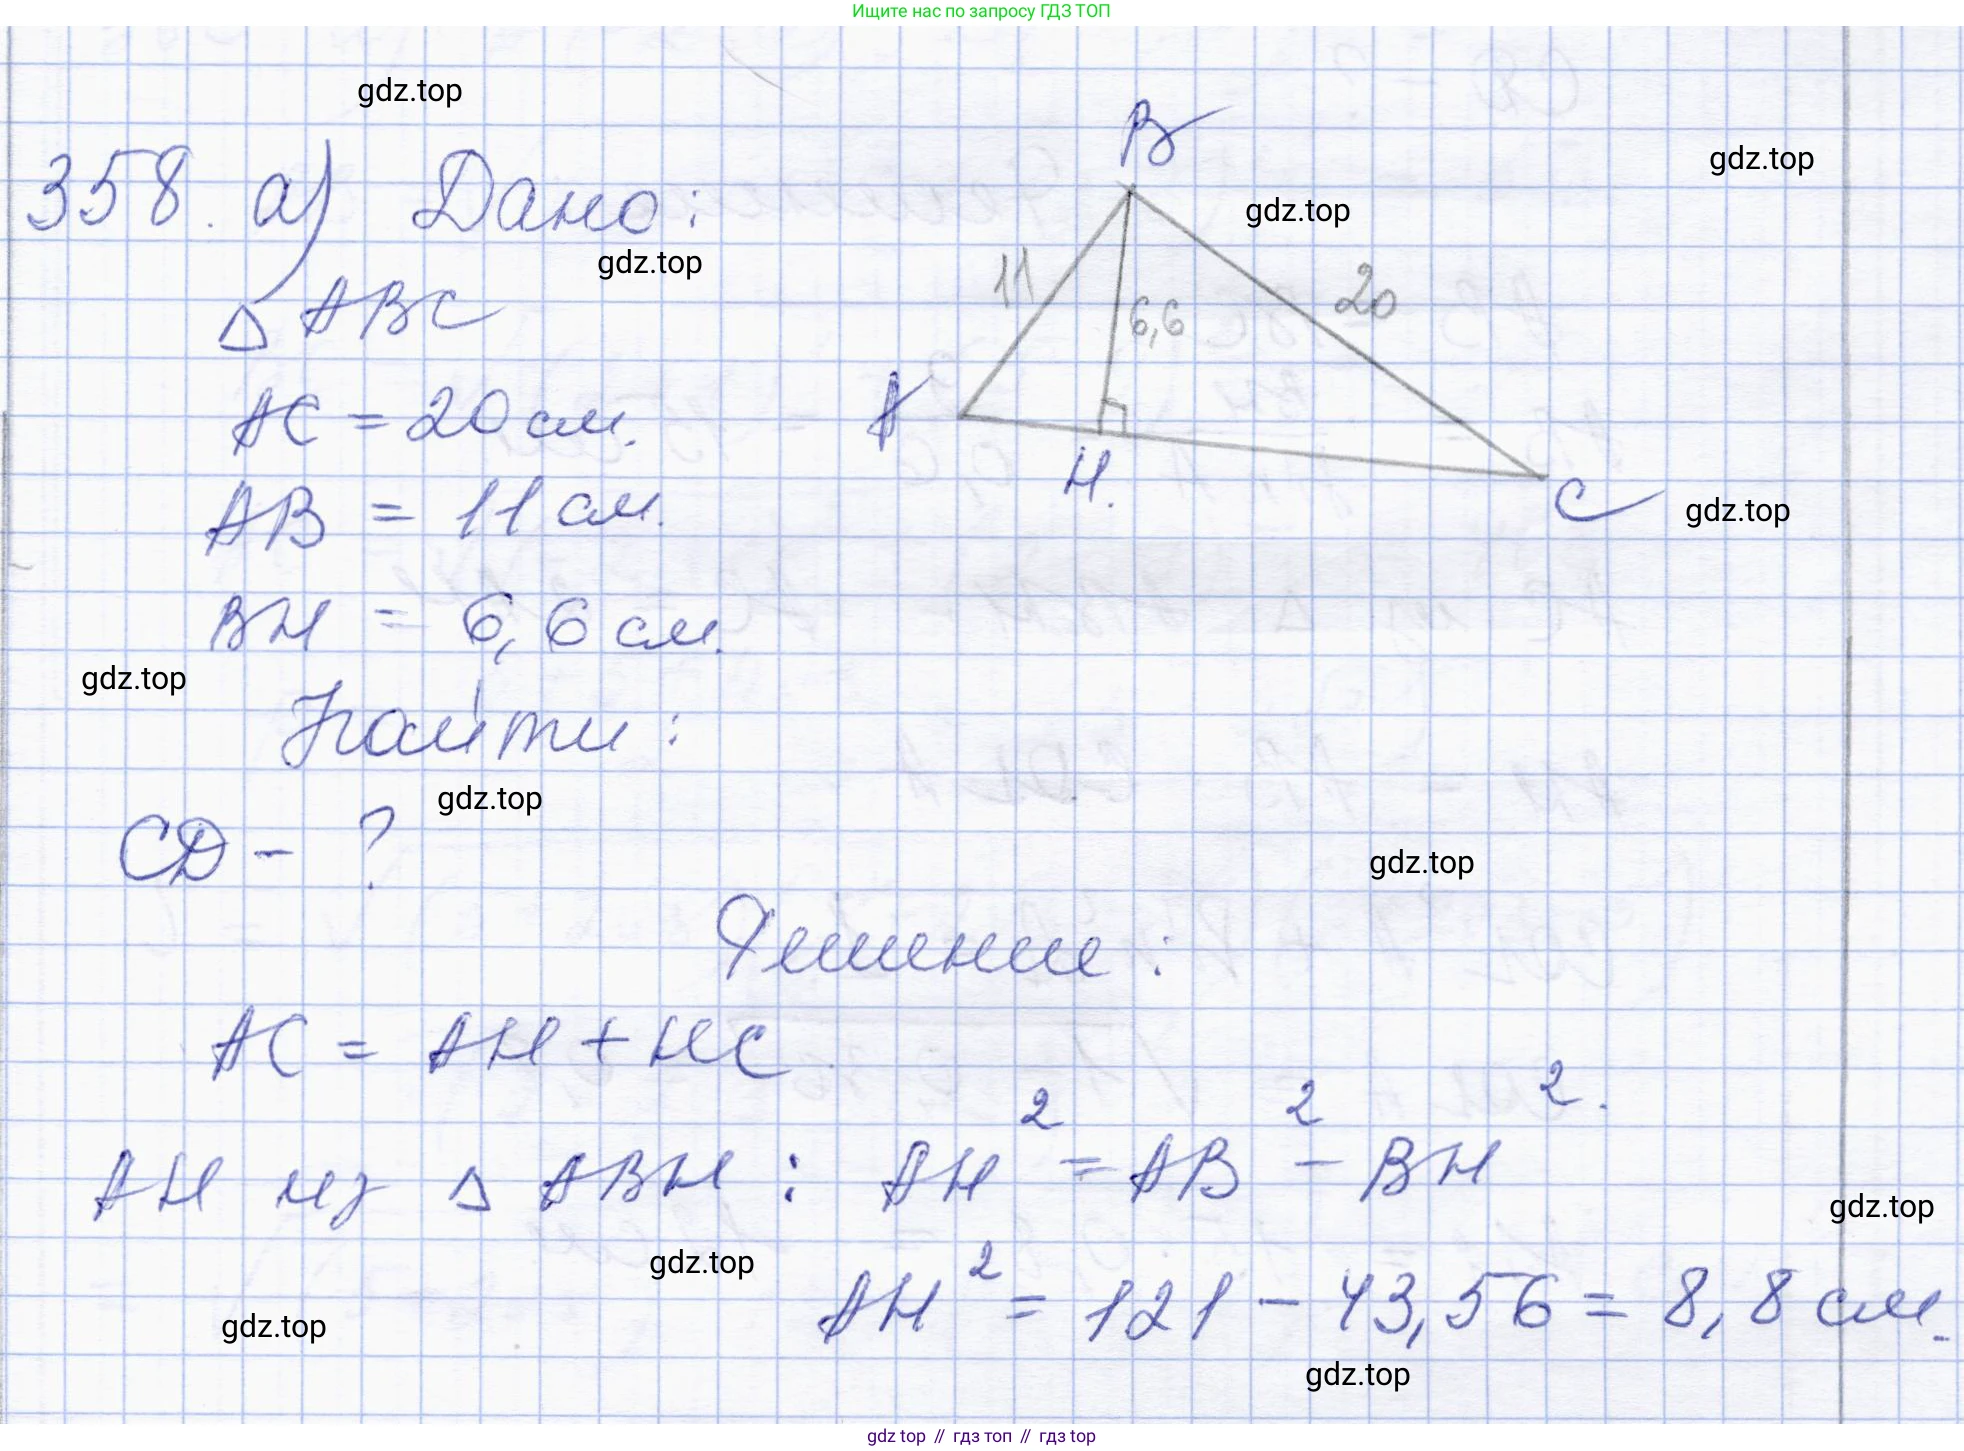 Ищите нас по запросу ГДЗ ТОП
gdz.top
358. а) Дано:
gdz.top
gdz.top
gdz.top
△ ABC
AC = 20 см.
AB = 11 см.
BH = 6,6 см.
B
11
6,6
20
A
H.
C
gdz.top
gdz.top
Найти:
gdz.top
CD - ?
gdz.top
Решение:
AC = AH + HC.
AH из △ ABH : AH² = AB² - BH².
gdz.top
gdz.top
AH² = 121 - 43,56 = 8,8 см.
gdz.top
gdz.top
gdz top // гдз топ // гдз top